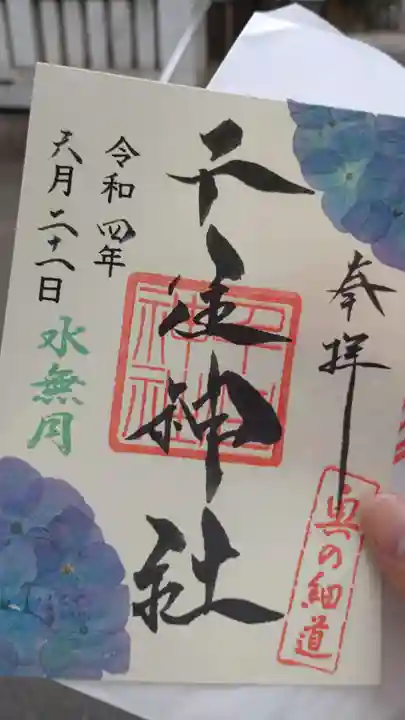 奉拝
奥の細道
千住神社
千住神社
令和四年
六月二十八日
水無月